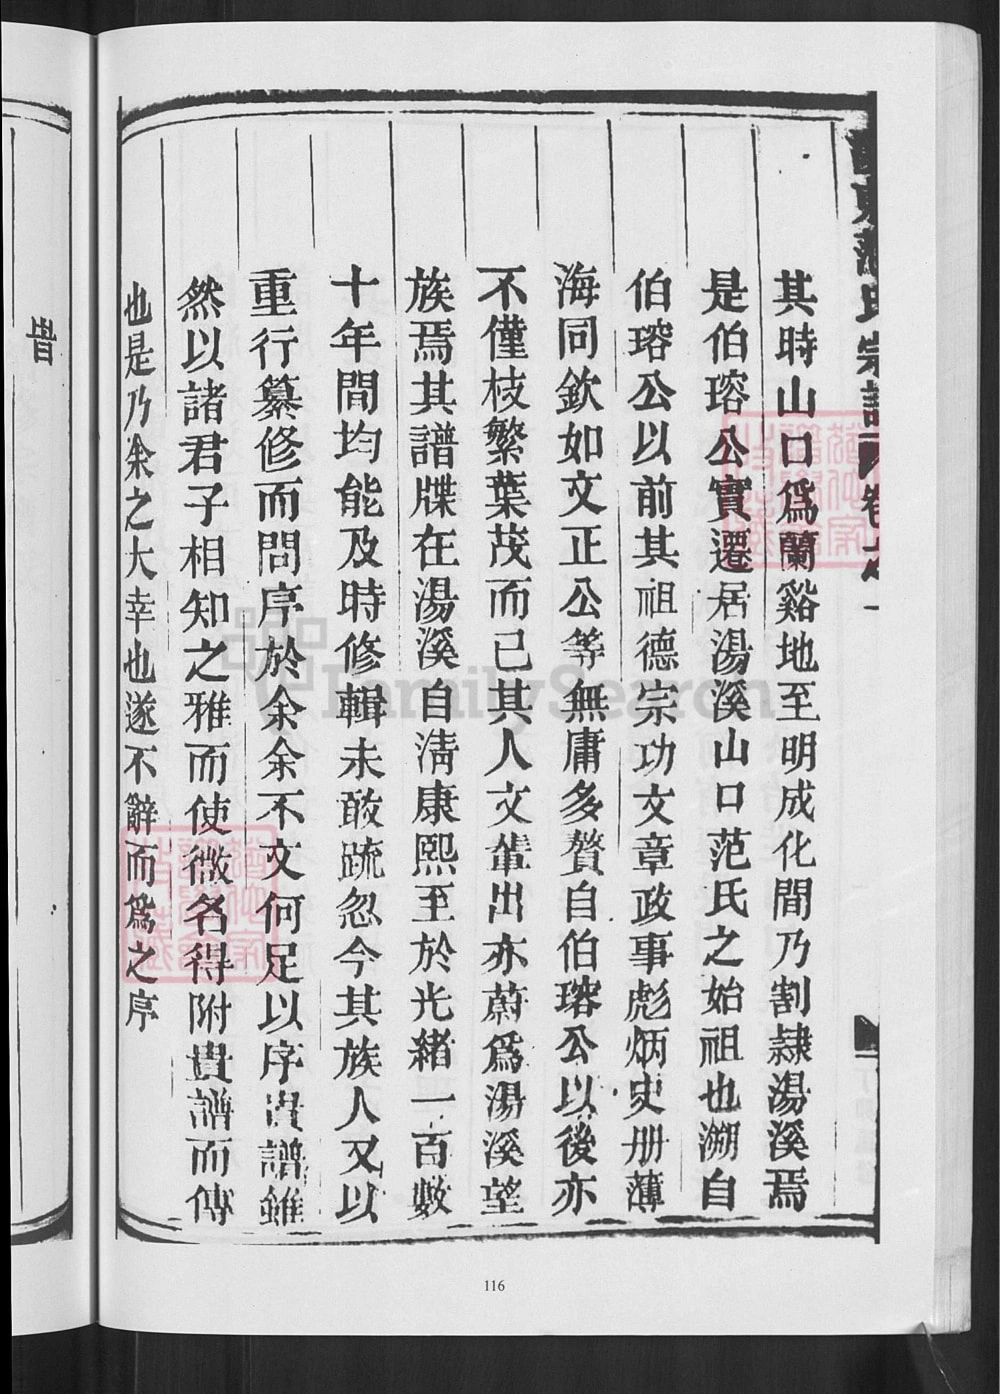 氏宗譜 卷之一
其時山口爲蘭谿地至明成化間乃割隷湯溪焉
是伯瑢公實遷居湯溪山口范氏之始祖也溯自
伯瑢公以前其祖德宗功文章政事彪炳史册薄
海同欽如文正公等無庸多贅自伯瑢公以後亦
不僅枝繁葉茂而已其人文輩出亦蔚爲湯溪望
族焉其譜牒在湯溪自淸康熙至於光緒一百數
十年間均能及時修輯未敢疏忽今其族人又以
重行纂修而問序於余余不文何足以序貴譜雖
然以諸君子相知之雅而使微名得附貴譜而傳
也是乃余之大幸也遂不辭而爲之序
FamilySearch
116